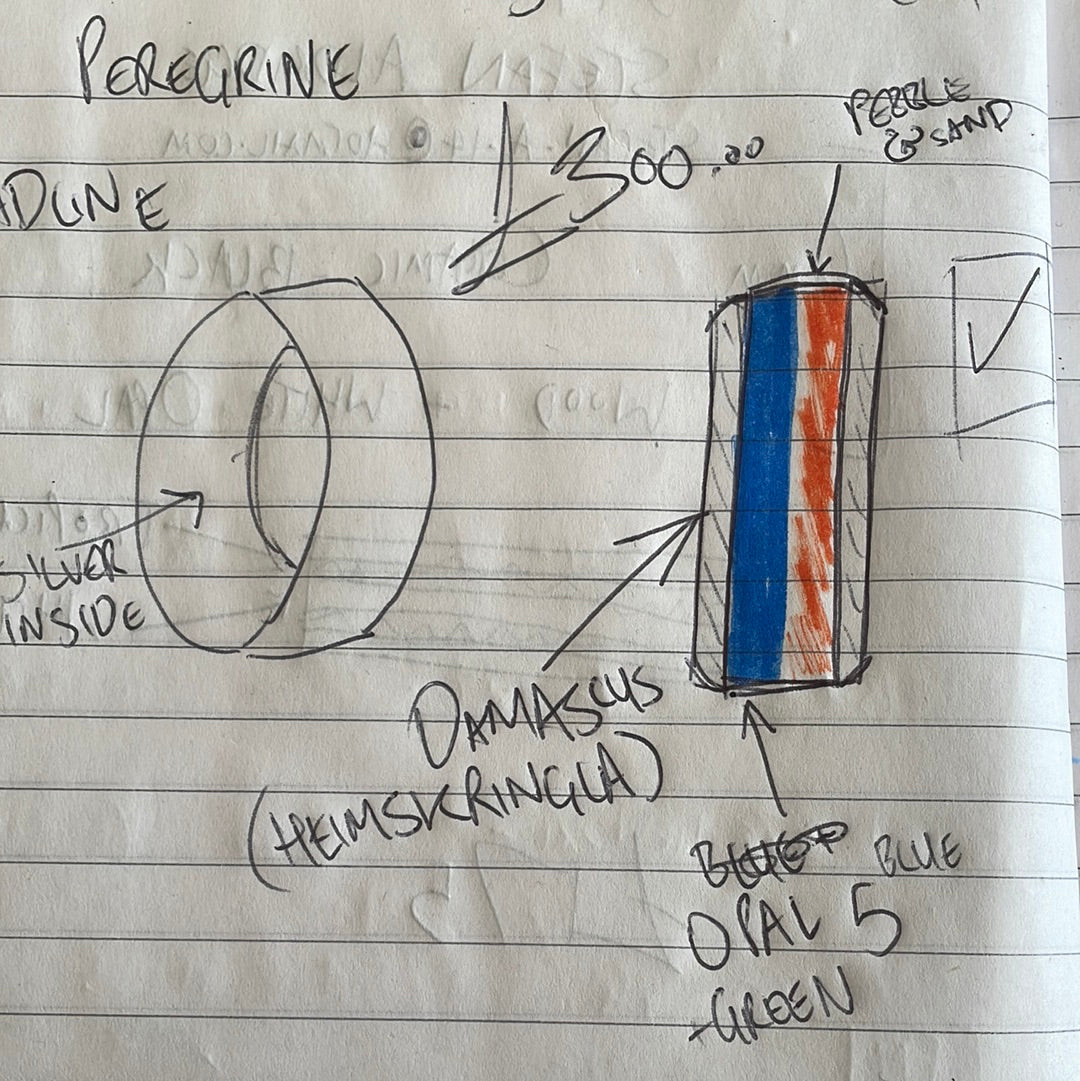 PEREGRINE
£300.00
PEBBLE
& SAND
ADLINE
SILVER
INSIDE
DAMASCUS
(HEIMSKRINGLA)
BLUE
OPAL 5
-GREEN